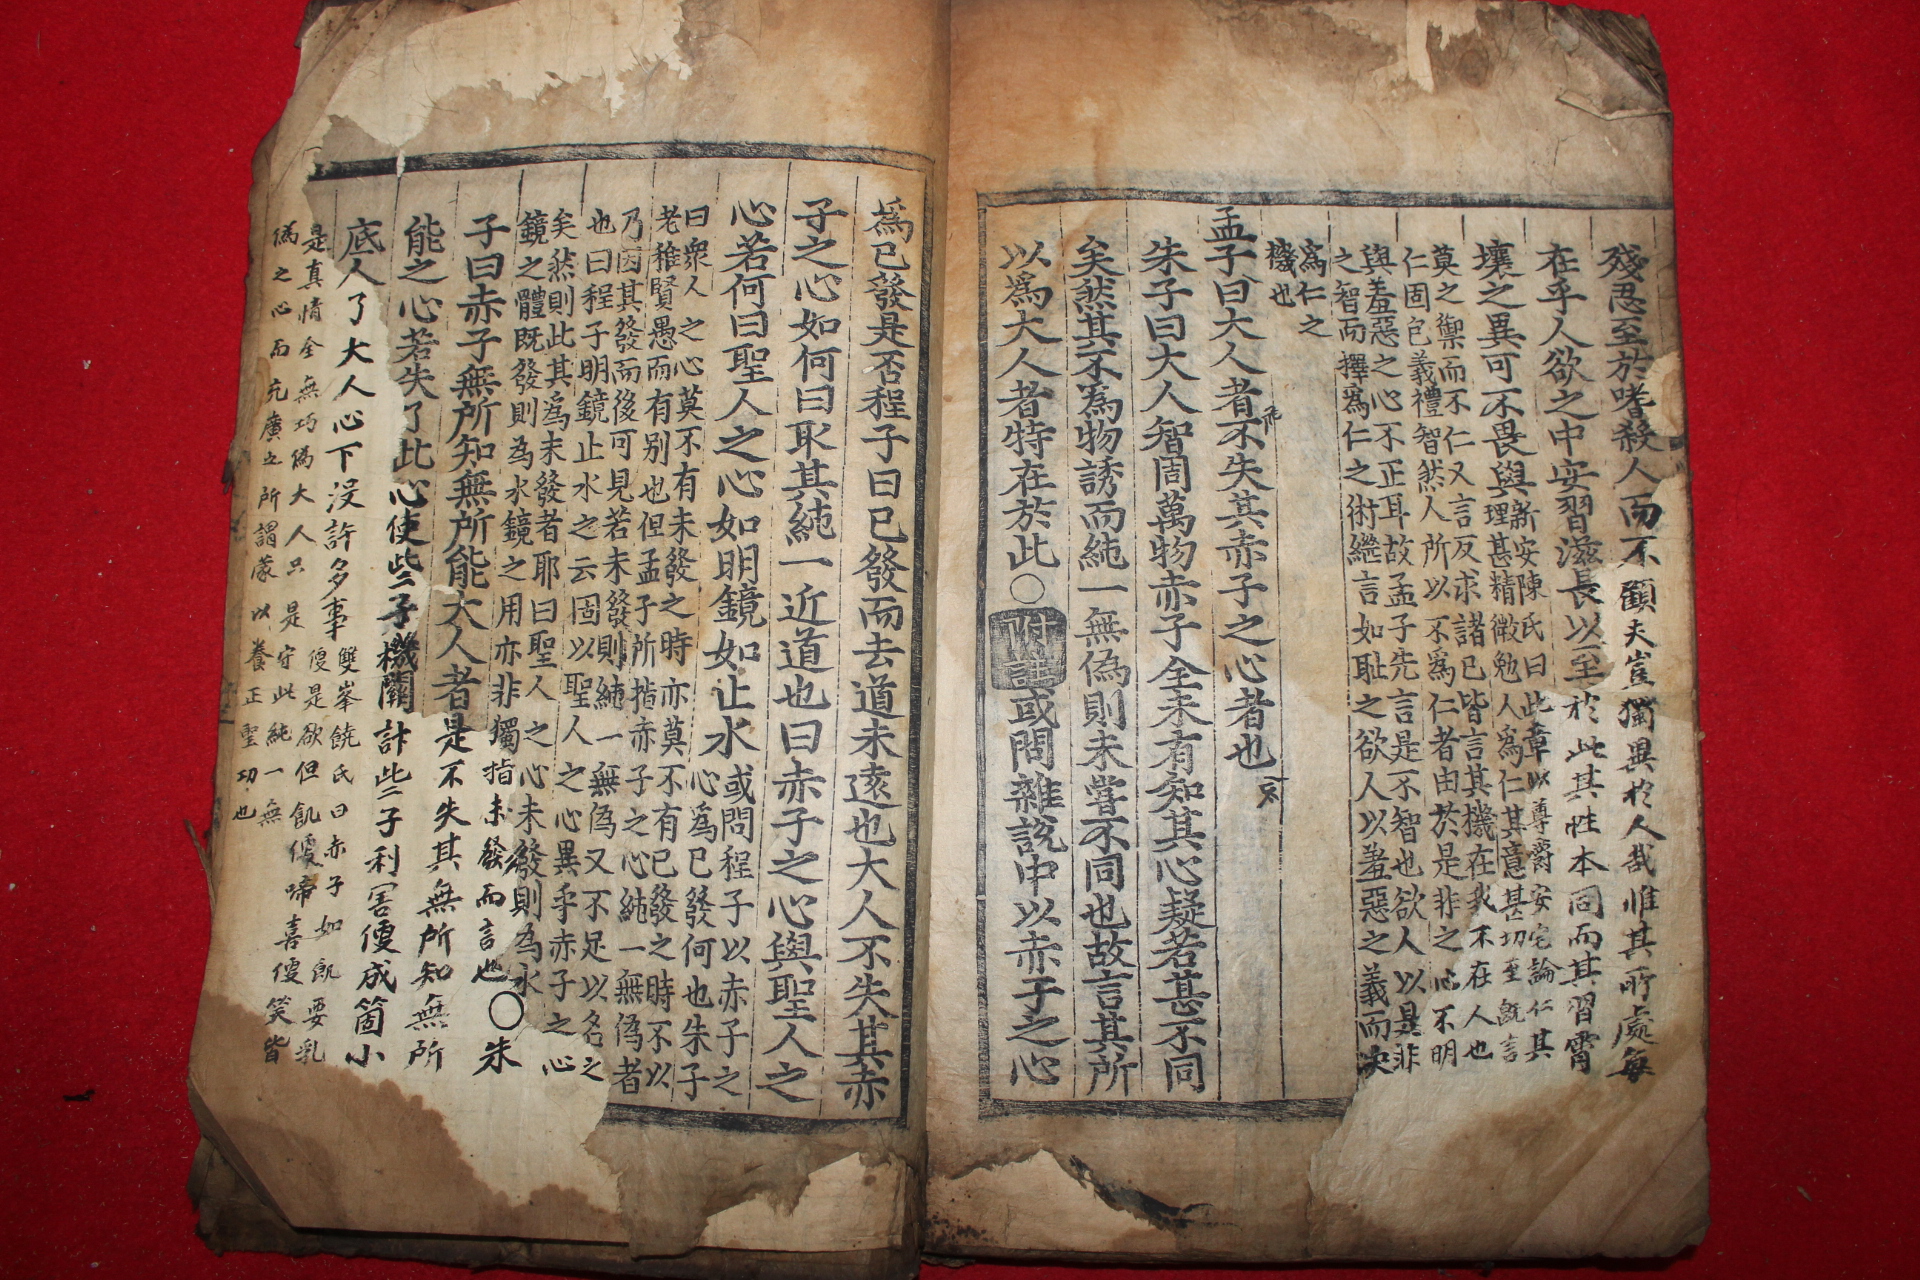 殘忍至於嗜殺人而不顧夫豈獨異於人哉惟其所處每
在乎人欲之中安習滋長以至於此其性本同而其習霄
壤之異可不畏與
新安陳氏曰此章以尊爵安宅論仁其
理甚精微勉人爲仁其意甚切至旣言
莫之禦而不仁又言反求諸已皆言其機在我不在人也
仁固包義禮智然人所以不爲仁者由於是非之心不明
與羞惡之心不正耳故孟子先言是不智也欲人以是非
之智而擇爲仁之術繼言如恥之欲人以羞惡之義而决
爲仁之
機也
孟子曰大人者不失其赤子之心者也
朱子曰大人智周萬物赤子全未有知其心疑若甚不同
矣然其不爲物誘而純一無僞則未嘗不同也故言其所
以爲大人者特在於此○附註或問雜說中以赤子之心
爲已發是否程子曰已發而去道未遠也大人不失其赤
子之心如何曰取其純一近道也曰赤子之心與聖人之
心若何曰聖人之心如明鏡如止水
或問程子以赤子之
心爲已發何也朱子
曰衆人之心莫不有未發之時亦莫不有已發之時不以
老稚賢愚而有别也但孟子所指赤子之心純一無僞者
乃因其發而後可見若未發則純一無僞又不足以名之
也曰程子明鏡止水之云固以聖人之心異乎赤子之心
矣然則此其爲未發者耶曰聖人之心未發則為水
鏡之體既發則為水鏡之用亦非獨指未發而言也○朱
子曰赤子無所知無所能大人者是不失其無所知無所
能之心若失了此心使些子機關計些子利害便成箇小
底人了大人心下沒許多事
雙峯饒氏曰赤子如飢要乳
便是欲但飢便啼喜便笑皆
是真情全無巧僞大人只是守此純一無
僞之心而充廣之所謂蒙以養正聖功也